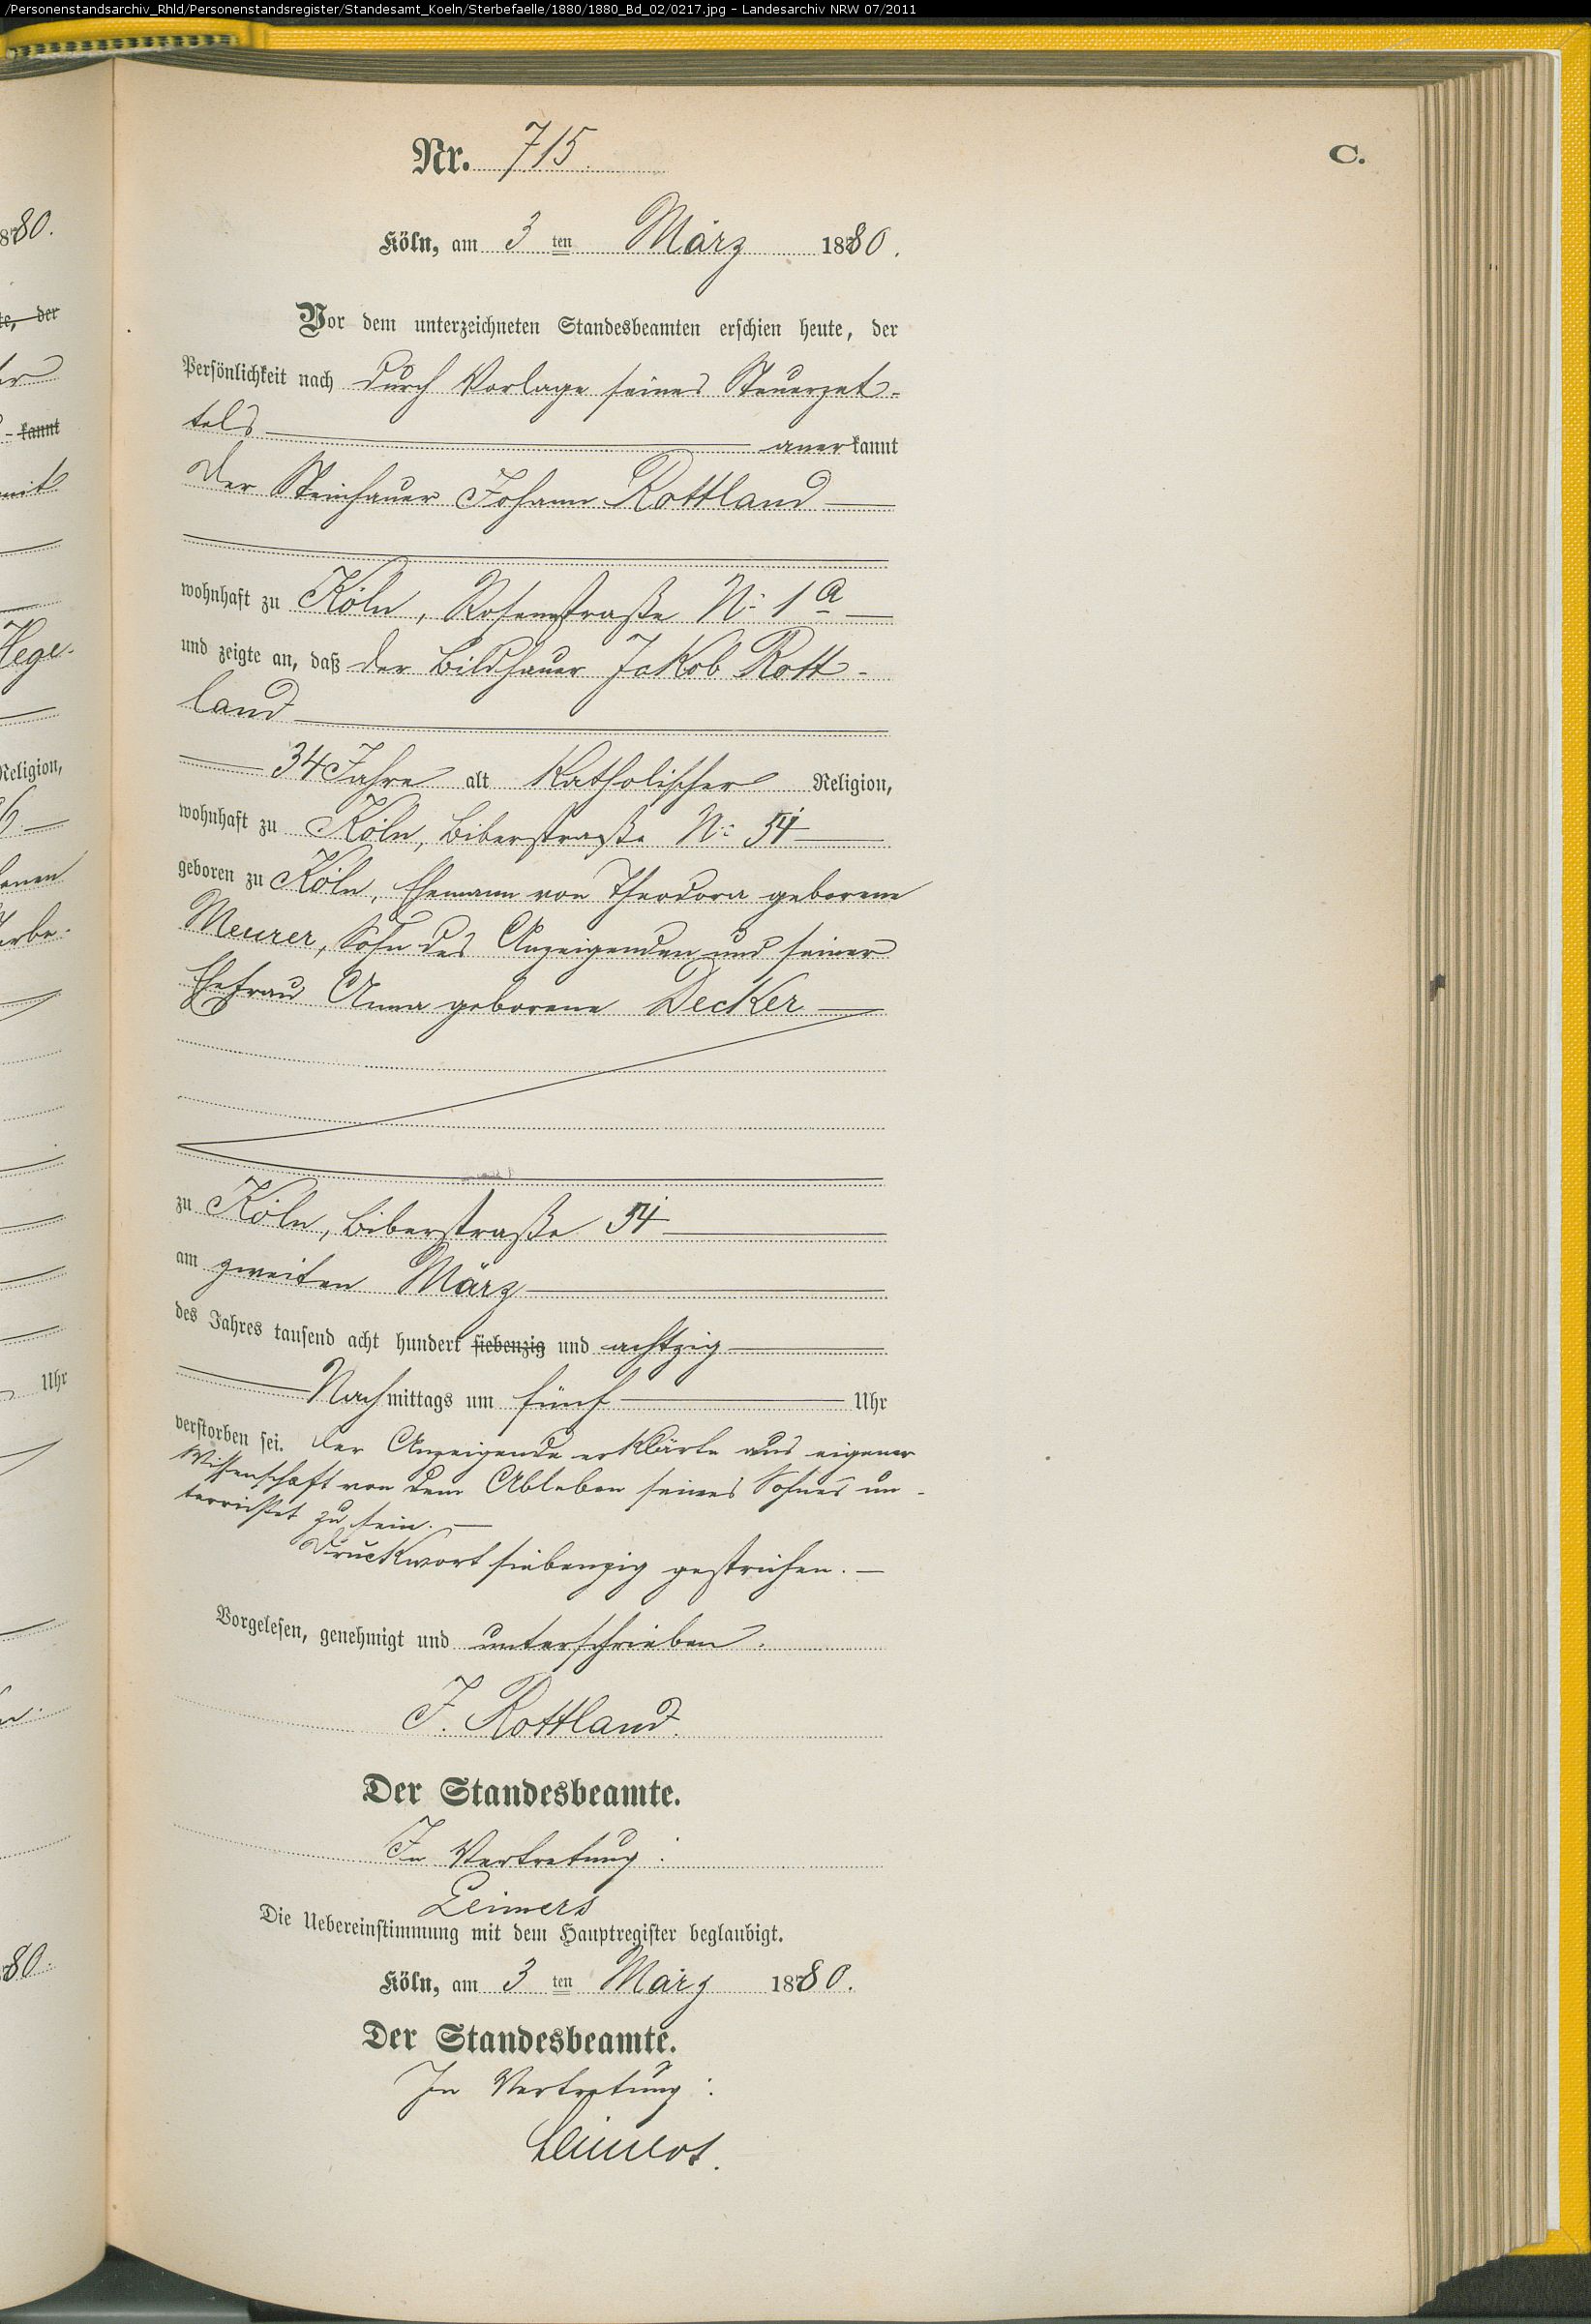 /Personenstandsarchiv_Rhld/Personenstandsregister/Standesamt_Koeln/Sterbefaelle/1880/1880_Bd_02/0217.jpg - Landesarchiv NRW 07/2011
C.
Nr. 715.
Köln, am 3 ten März 1880.
Vor dem unterzeichneten Standesbeamten erschien heute, der
Persönlichkeit nach durch Vorlage seines Steuerzet-
tels anerkannt
der Steinhauer Johann Rottland
wohnhaft zu Köln, Rosenstraße No 1a
und zeigte an, daß der Bildhauer Jakob Rott-
land
34 Jahre alt katholischer Religion,
wohnhaft zu Köln, Biberstraße No 54
geboren zu Köln, Ehemann von Theodora geborene
Meurer, Sohn des Anzeigenden und seiner
Ehefrau Anna geborene Decker
zu Köln, Biberstraße 54
am zweiten März
des Jahres tausend acht hundert siebenzig und achtzig
Nachmittags um fünf Uhr
verstorben sei. Der Anzeigende erklärte aus eigener
Wissenschaft von dem Ableben seines Sohnes un-
terrichtet zu sein.
Druckwort siebenzig gestrichen.
Vorgelesen, genehmigt und unterschrieben.
J. Rottland.
Der Standesbeamte.
In Vertretung:
Leimers
Die Uebereinstimmung mit dem Hauptregister beglaubigt.
Köln, am 3 ten März 1880.
Der Standesbeamte.
In Vertretung:
Leimers.